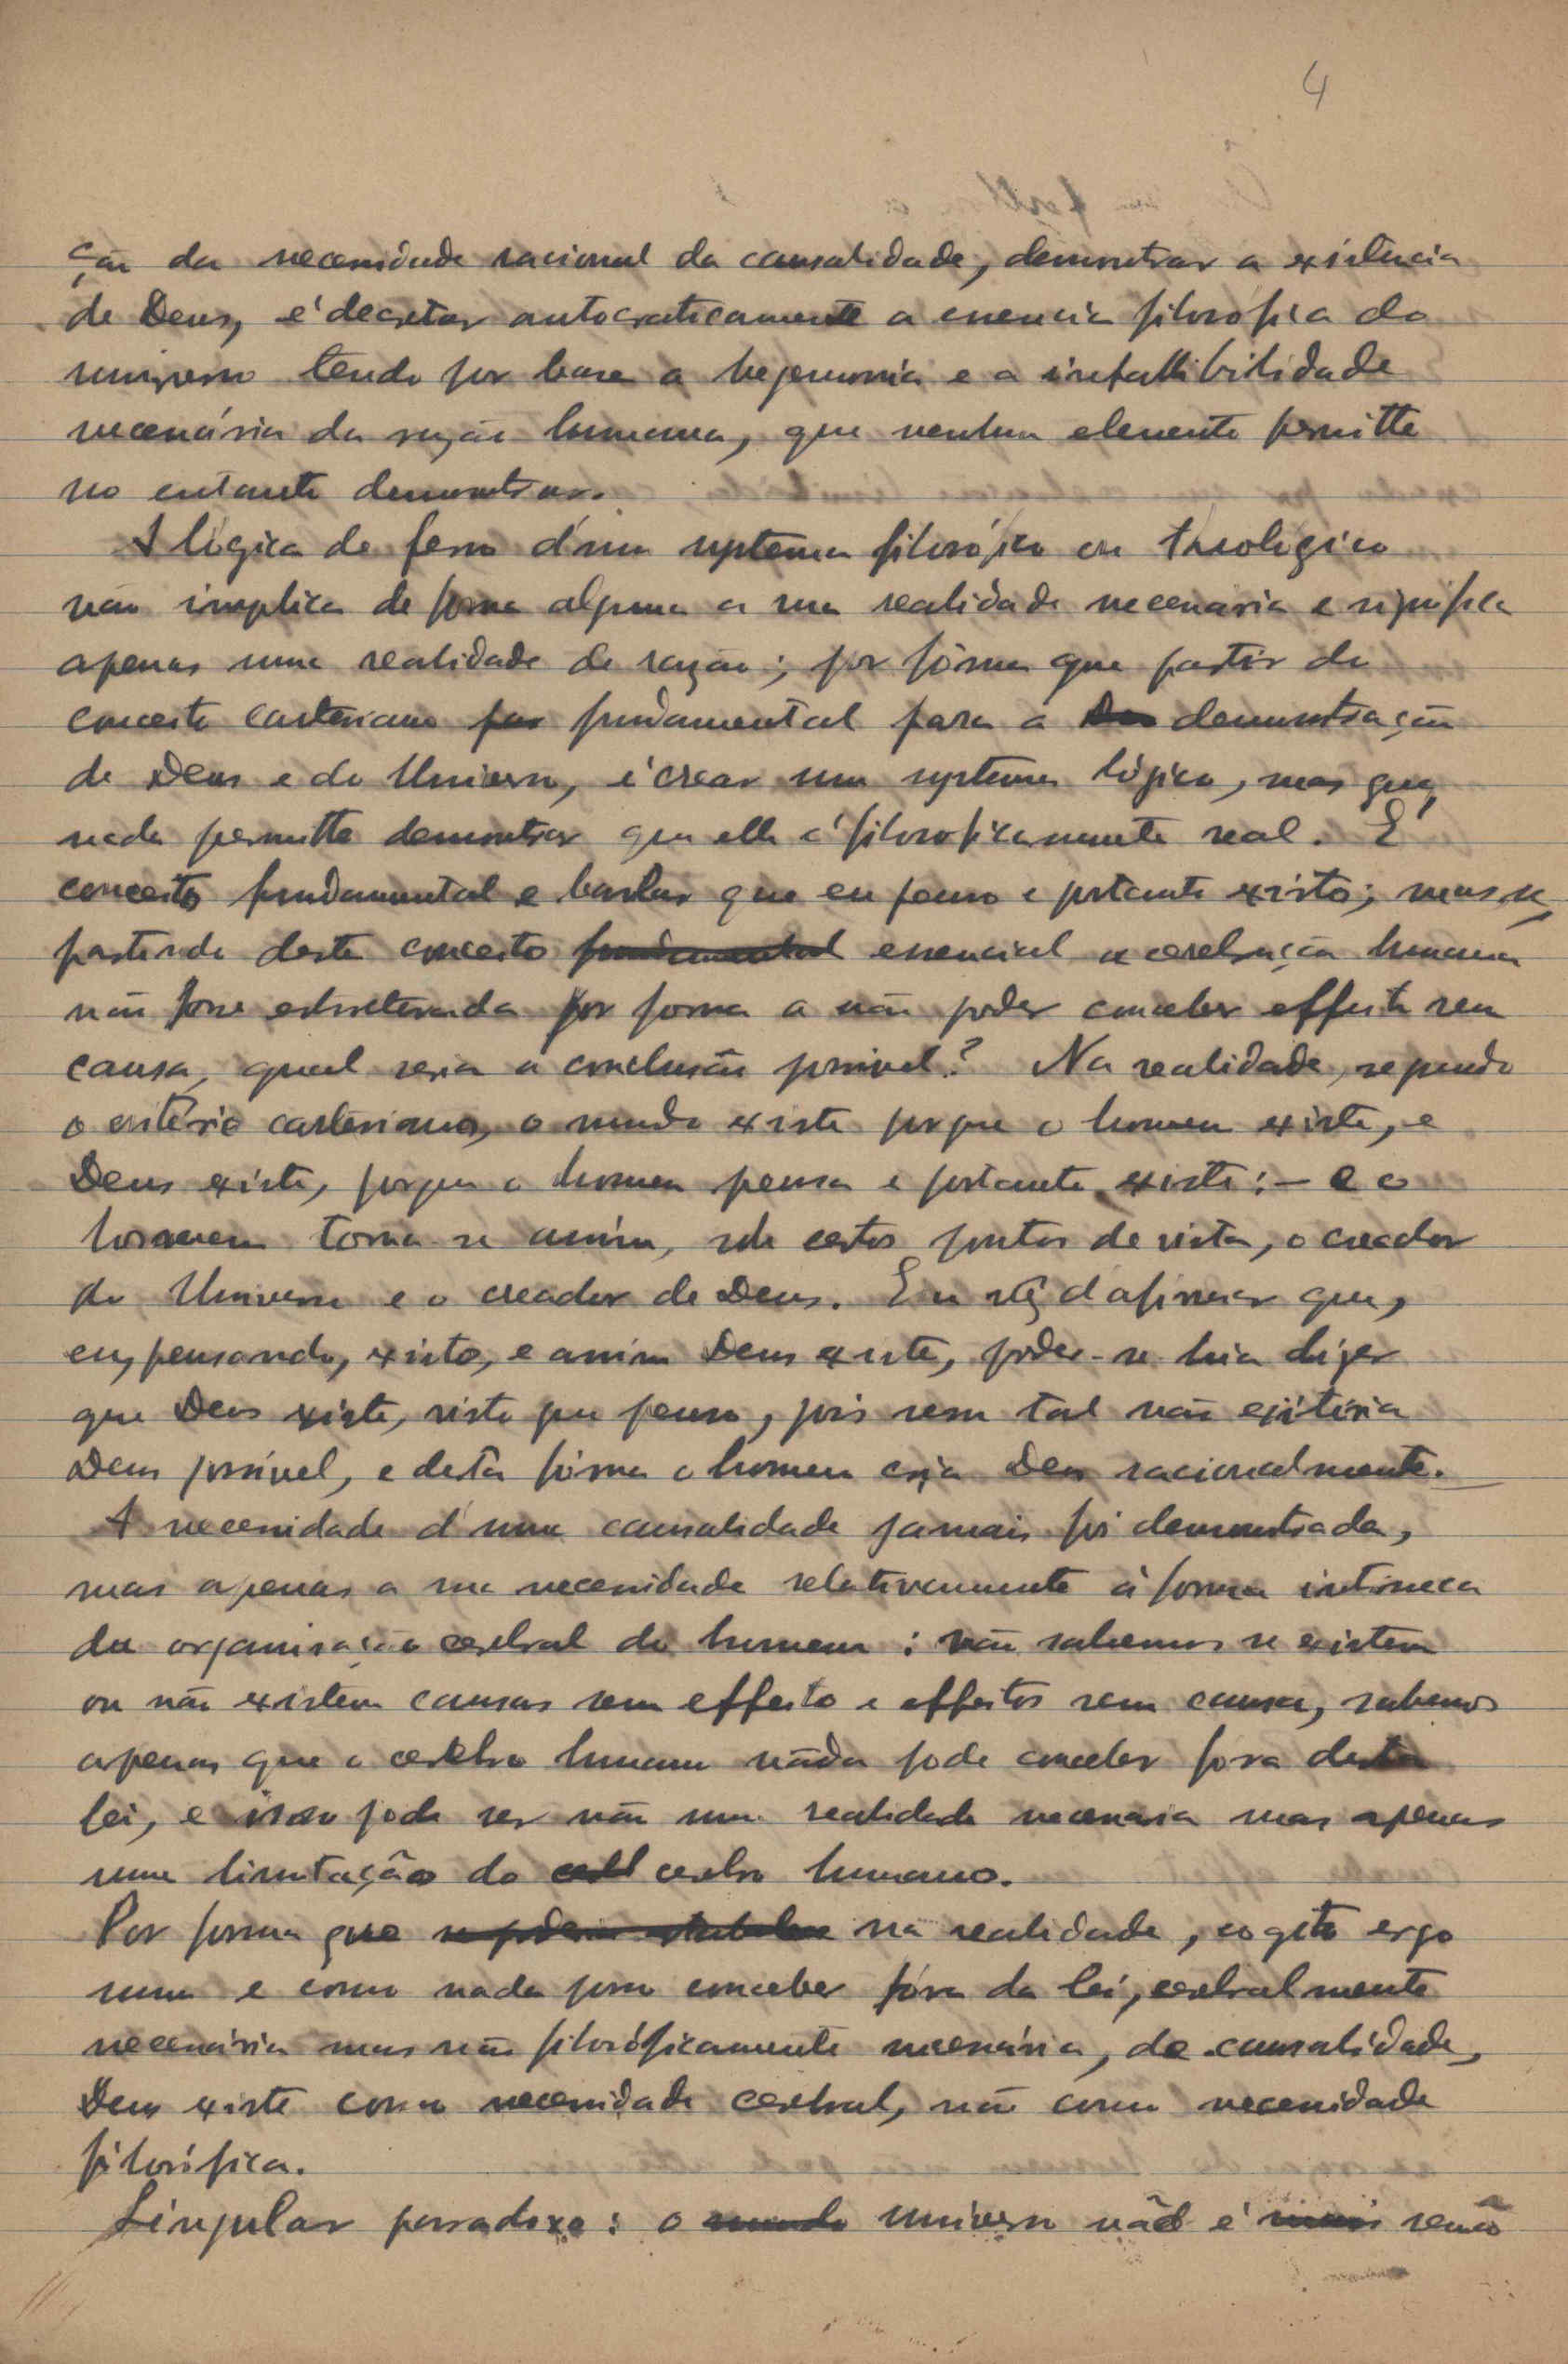 4
ção da necessidade racional da causalidade, demonstrar a existencia
de Deus, é decretar autocraticamente a essencia filosófica do
universo tendo por base a hegemonia e a infallibilidade
necessária da razão humana, que nenhum elemento permitte
no entanto demonstrar.
A lógica de ferro d'um systema filosófico ou theológico
não implica de forma alguma a sua realidade necessaria e significa
apenas uma realidade de razão; por fórma que partir do
conceito cartesiano por fundamental para a Deu demonstração
de Deus e do Universo, é crear um systema lógico, mas que,
nada permitte demonstrar que elle é filosoficamente real. É
conceito fundamental e basilar que eu penso e portanto existo; mas se,
partindo deste conceito fundamental essencial a cerebração humana
não fosse estructurada por forma a não poder conceber effeito sem
causa, qual seria a conclusão possivel? Na realidade, segundo
o critério cartesiano, o mundo existe porque o homem existe, e
Deus existe, porque o homem pensa e portanto existe: – e o
homem torna se assim, sob certos pontos de vista, o creador
do Universo e o creador de Deus. Em vêz d'afirmar que,
eu, pensando, existo, e assim Deus existe, poder-se-hia dizer
que Deus existe, visto que penso, pois sem tal não existiria
Deus possível, e desta fórma o homem cria Deus racionalmente.
A necessidade d'uma causalidade jamais foi demonstrada,
mas apenas a sua necessidade relativamente á forma intrinseca
da organisação cerebral do homem: não sabemos se existem
ou não existem causas sem effeito e effeitos sem causa, sabemos
apenas que o cerebro humano nada pode conceber fora desta
lei, e isso pode ser não uma realidade necessaria mas apenas
uma limitação do cerebro humano.
Por forma que se poderia estabelecer na realidade, cogito ergo
sum e como nada posso conceber fóra da lei, cerebralmente
necessária mas não filosóficamente necessária, de causalidade,
Deus existe como necessidade cerebral, não como necessidade
filosófica.
Singular paradoxo: o mundo universo não é mais senão